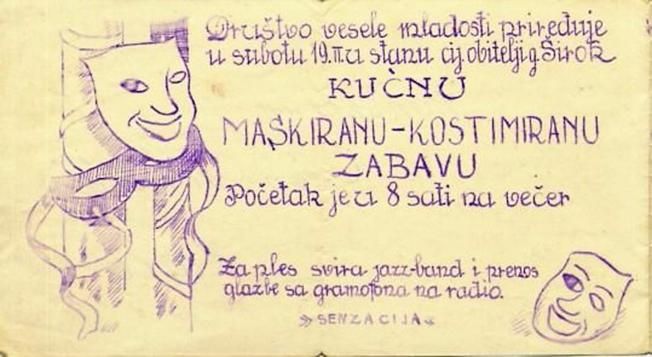 Društvo vesele mladosti priređuje
u subotu 19.II. u stanu cij. obitelji g. Širok
KUĆNU
MASKIRANU-KOSTIMIRANU
ZABAVU
Početak je u 8 sati na večer
Za ples svira jazz-band i prenos
glazbe sa gramofona na radio.
»SENZACIJA«